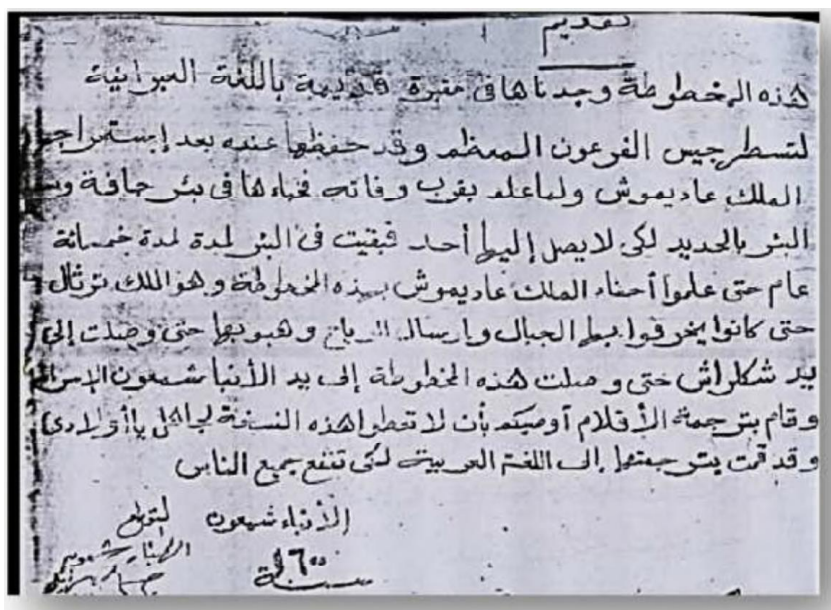 تقديم
هذه المخطوطة وجدناها في مقبرة قديمة باللغة العبرانية
لتسطرجيس الفرعون المعظم وقد حفظها عنده بعد إستمراجها
الملك عاديموش ولما علم بقرب وفاته فخباءها في بئر جافة
البئر بالحديد لكي لا يصل إليها أحد فبقيت في البئر لمدة لمدة خمسمائة
عام حتى علموا أحفاء الملك عاديموش بهذه المخطوطة وهو الملك ترثال
حتى كانوا يخرقوا بها الجبال وإرسال الرياح وهبوبها حتى وصلت إلى
يد شكلراش حتى وصلت هذه المخطوطة إلى يد الأنبا شمعون
وقام بترجمة الأقلام أوصيكم بأن لا تعطوا هذه النسخة لجاهل يا أولادي
وقد قمت بترجمتها إلى اللغة العربية لكي تنفع جميع الناس
الأنباء شمعون
سنة